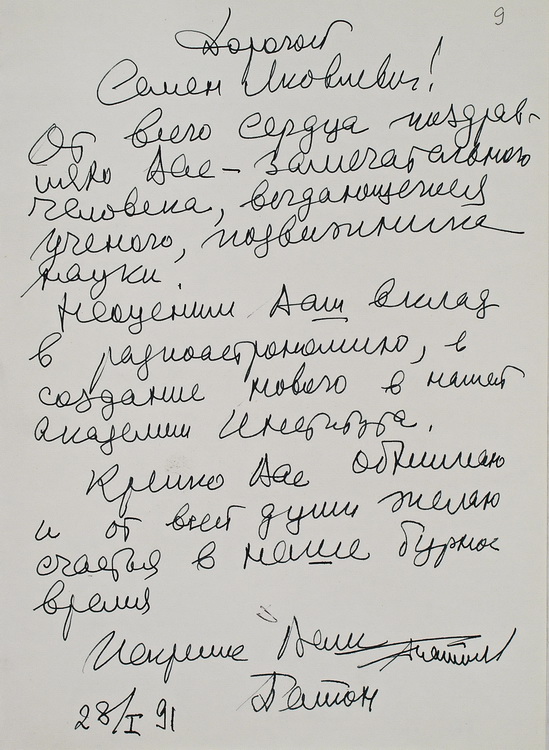 9
Дорогой
Семен Яковлевич!
От всего сердца поздрав-
ляю Вас – замечательного
человека, выдающегося
ученого, подвижника
науки.
Неоценим Ваш вклад
в радиоастрономию, в
создание нового в нашей
академии Института.
Крепко Вас обнимаю
и от всей души желаю
счастья в наше бурное
время
Искренне Ваш
Патон
28/I 91